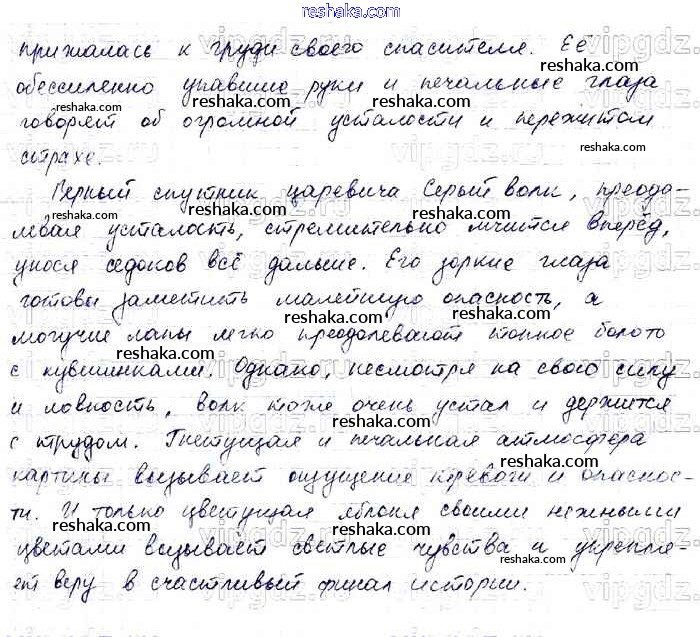 reshaka.com
прижалась к груди своего спасителя. Её
обессиленно упавшие руки и печальные глаза
говорят об огромной усталости и пережитом
страхе.
Верный спутник царевича Серый Волк, преодо-
левая усталость, стремительно мчится вперёд,
унося седоков всё дальше. Его зоркие глаза
готовы заметить малейшую опасность, а
могучие лапы легко преодолевают топкое болото
с кувшинками. Однако, несмотря на свою силу
и ловкость, волк тоже очень устал и держится
с трудом. Гнетущая и печальная атмосфера
картины вызывает ощущение тревоги и опаснос-
ти. И только цветущая яблоня своими нежными
цветами вызывает светлые чувства и укрепля-
ет веру в счастливый финал истории.